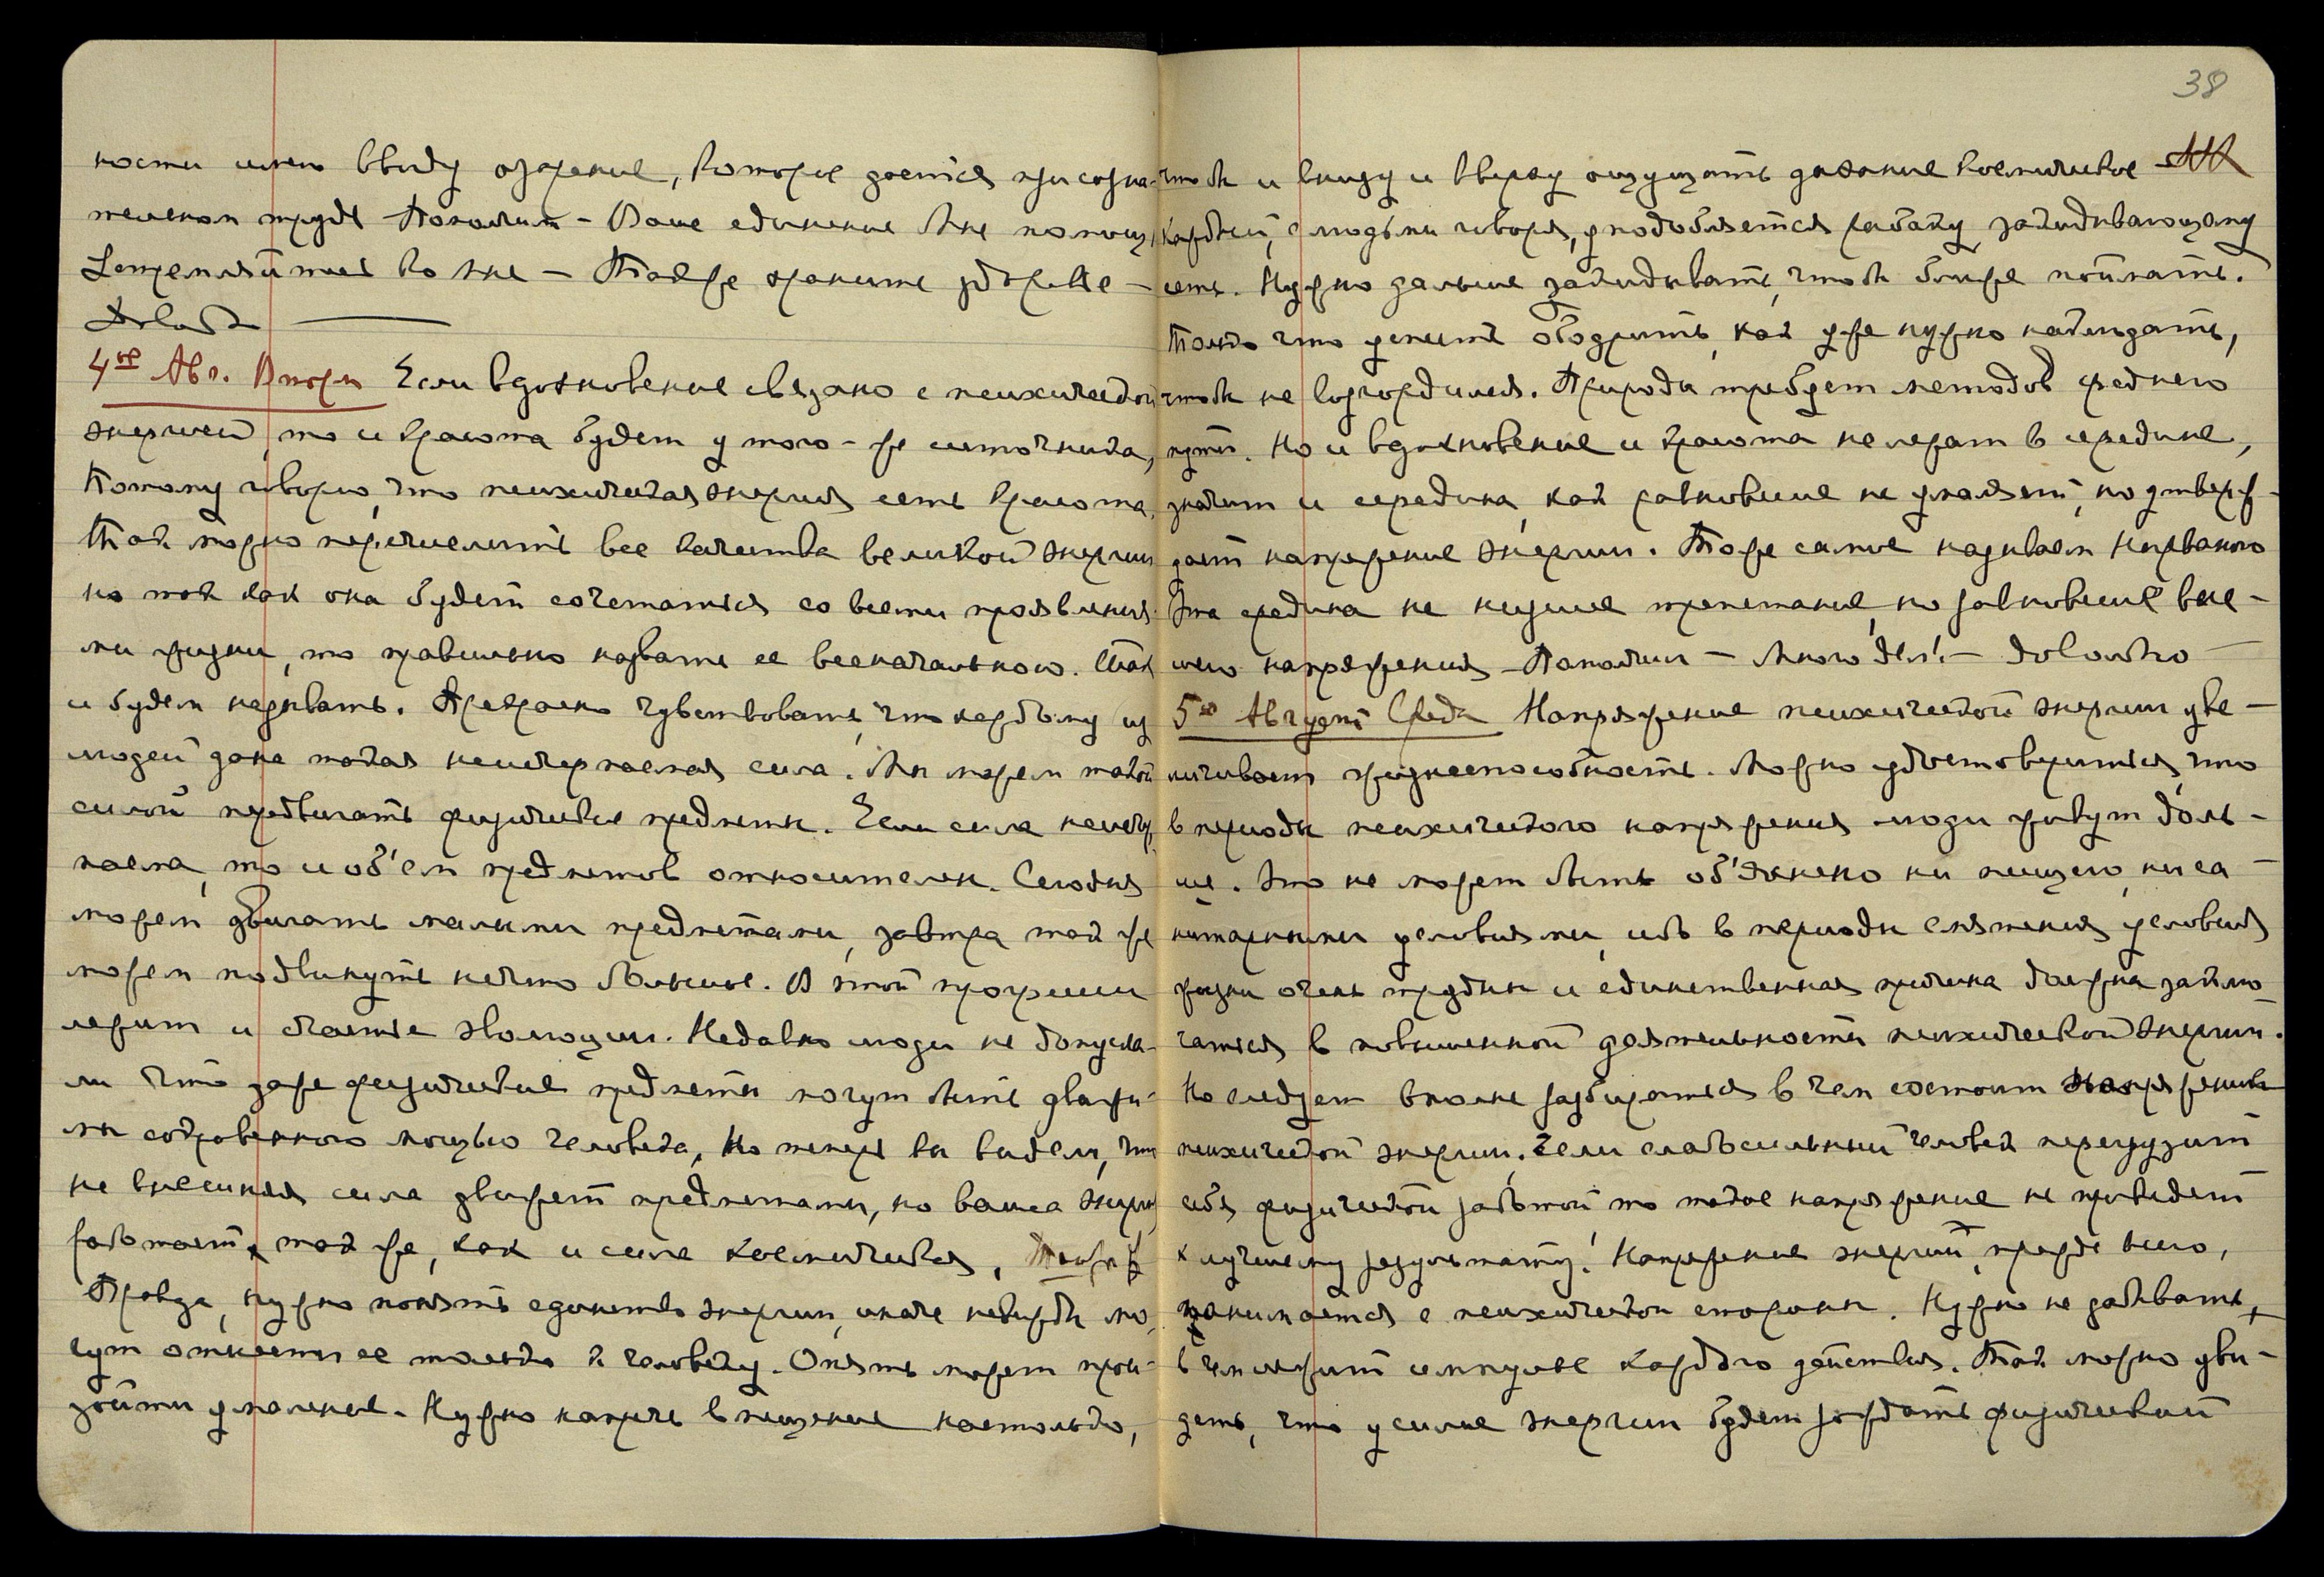 ности имею ввиду озарение, которое дается при созна-
тельном труде Помолчим – Ваше единение Мне помощь
Устремляйтесь ко Мне – Также храните здоровье –
Довольно
4го Авг. Вторн Если вдохновение связано с психической
энергией, то и красота будет у того-же источника,
Потому говорю, что психическая энергия есть красота.
Так можно перечислить все качества великой энергии
но так как она будет сочетаться со всеми проявления-
ми жизни, то правильно назвать ее всеначальною. Так
и будем называть. Прекрасно чувствовать, что каждому из
людей дана такая неисчерпаемая сила. Мы можем такой
силой передвигать физические предметы. Если сила неисчер-
паема, то и об'ем предметов относителен. Сегодня
можем двигать малыми предметами, завтра так же
можем подвинуть нечто большее. В этой прогрессии
лежит и счастье эволюции. Недавно люди не допуска-
ли что даже физические предметы могут быть движи-
мы сокровенною мощью человека, но теперь вы видели, что
не внешняя сила движет предметами, но ваша энергия
работает так же, как и сила космическая,
Правда, нужно понять единство энергии, иначе невежды мо-
гут отнести ее только к человеку. Опять может прои-
зойти умаление. Нужно напрячь внимание настолько,
38
чтобы и внизу и вверху ощущать дыхание космическое
Каждый, с людьми говоря, уподобляется рыбаку, закидывающему
сеть. Нужно дальше закидывать, чтобы ближе поймать.
Только что успеть ободрить, как уже нужно наблюдать,
чтобы не возгордился. Природа требует методов среднего
пути. Но и вдохновение и красота не лежат в середине,
значит и середина, как равновесие не умаляет, но утверж-
дает напряжение энергии. Тоже самое называем Нирваною
Эта средина не низшее трепетание, но равновесие выс-
шего напряжения – Помолчим – Много дел! – Довольно
5го Август Среда Напряжение психической энергии уве-
личивает жизнеспособность. Можно удостовериться, что
в периоды психического напряжения люди живут доль-
ше. Это не может быть об'яснено ни пищею, ни са-
нитарными условиями, ибо в периоды смятения условия
жизни очень трудны и единственная причина должна заклю-
чаться в повышенной деятельности психической энергии.
Но следует вполне разбираться в чем состоит напряжение
психической энергии. Если слабосильный человек перегрузит
себя физической работой то такое напряжение не приведет
к лучшему результату! Напряжение энергий, прежде всего,
понимается с психической стороны. Нужно не забывать,
в чем лежит импульс каждого действия. Так можно уви-
деть, что усилие энергии будет рождать физический